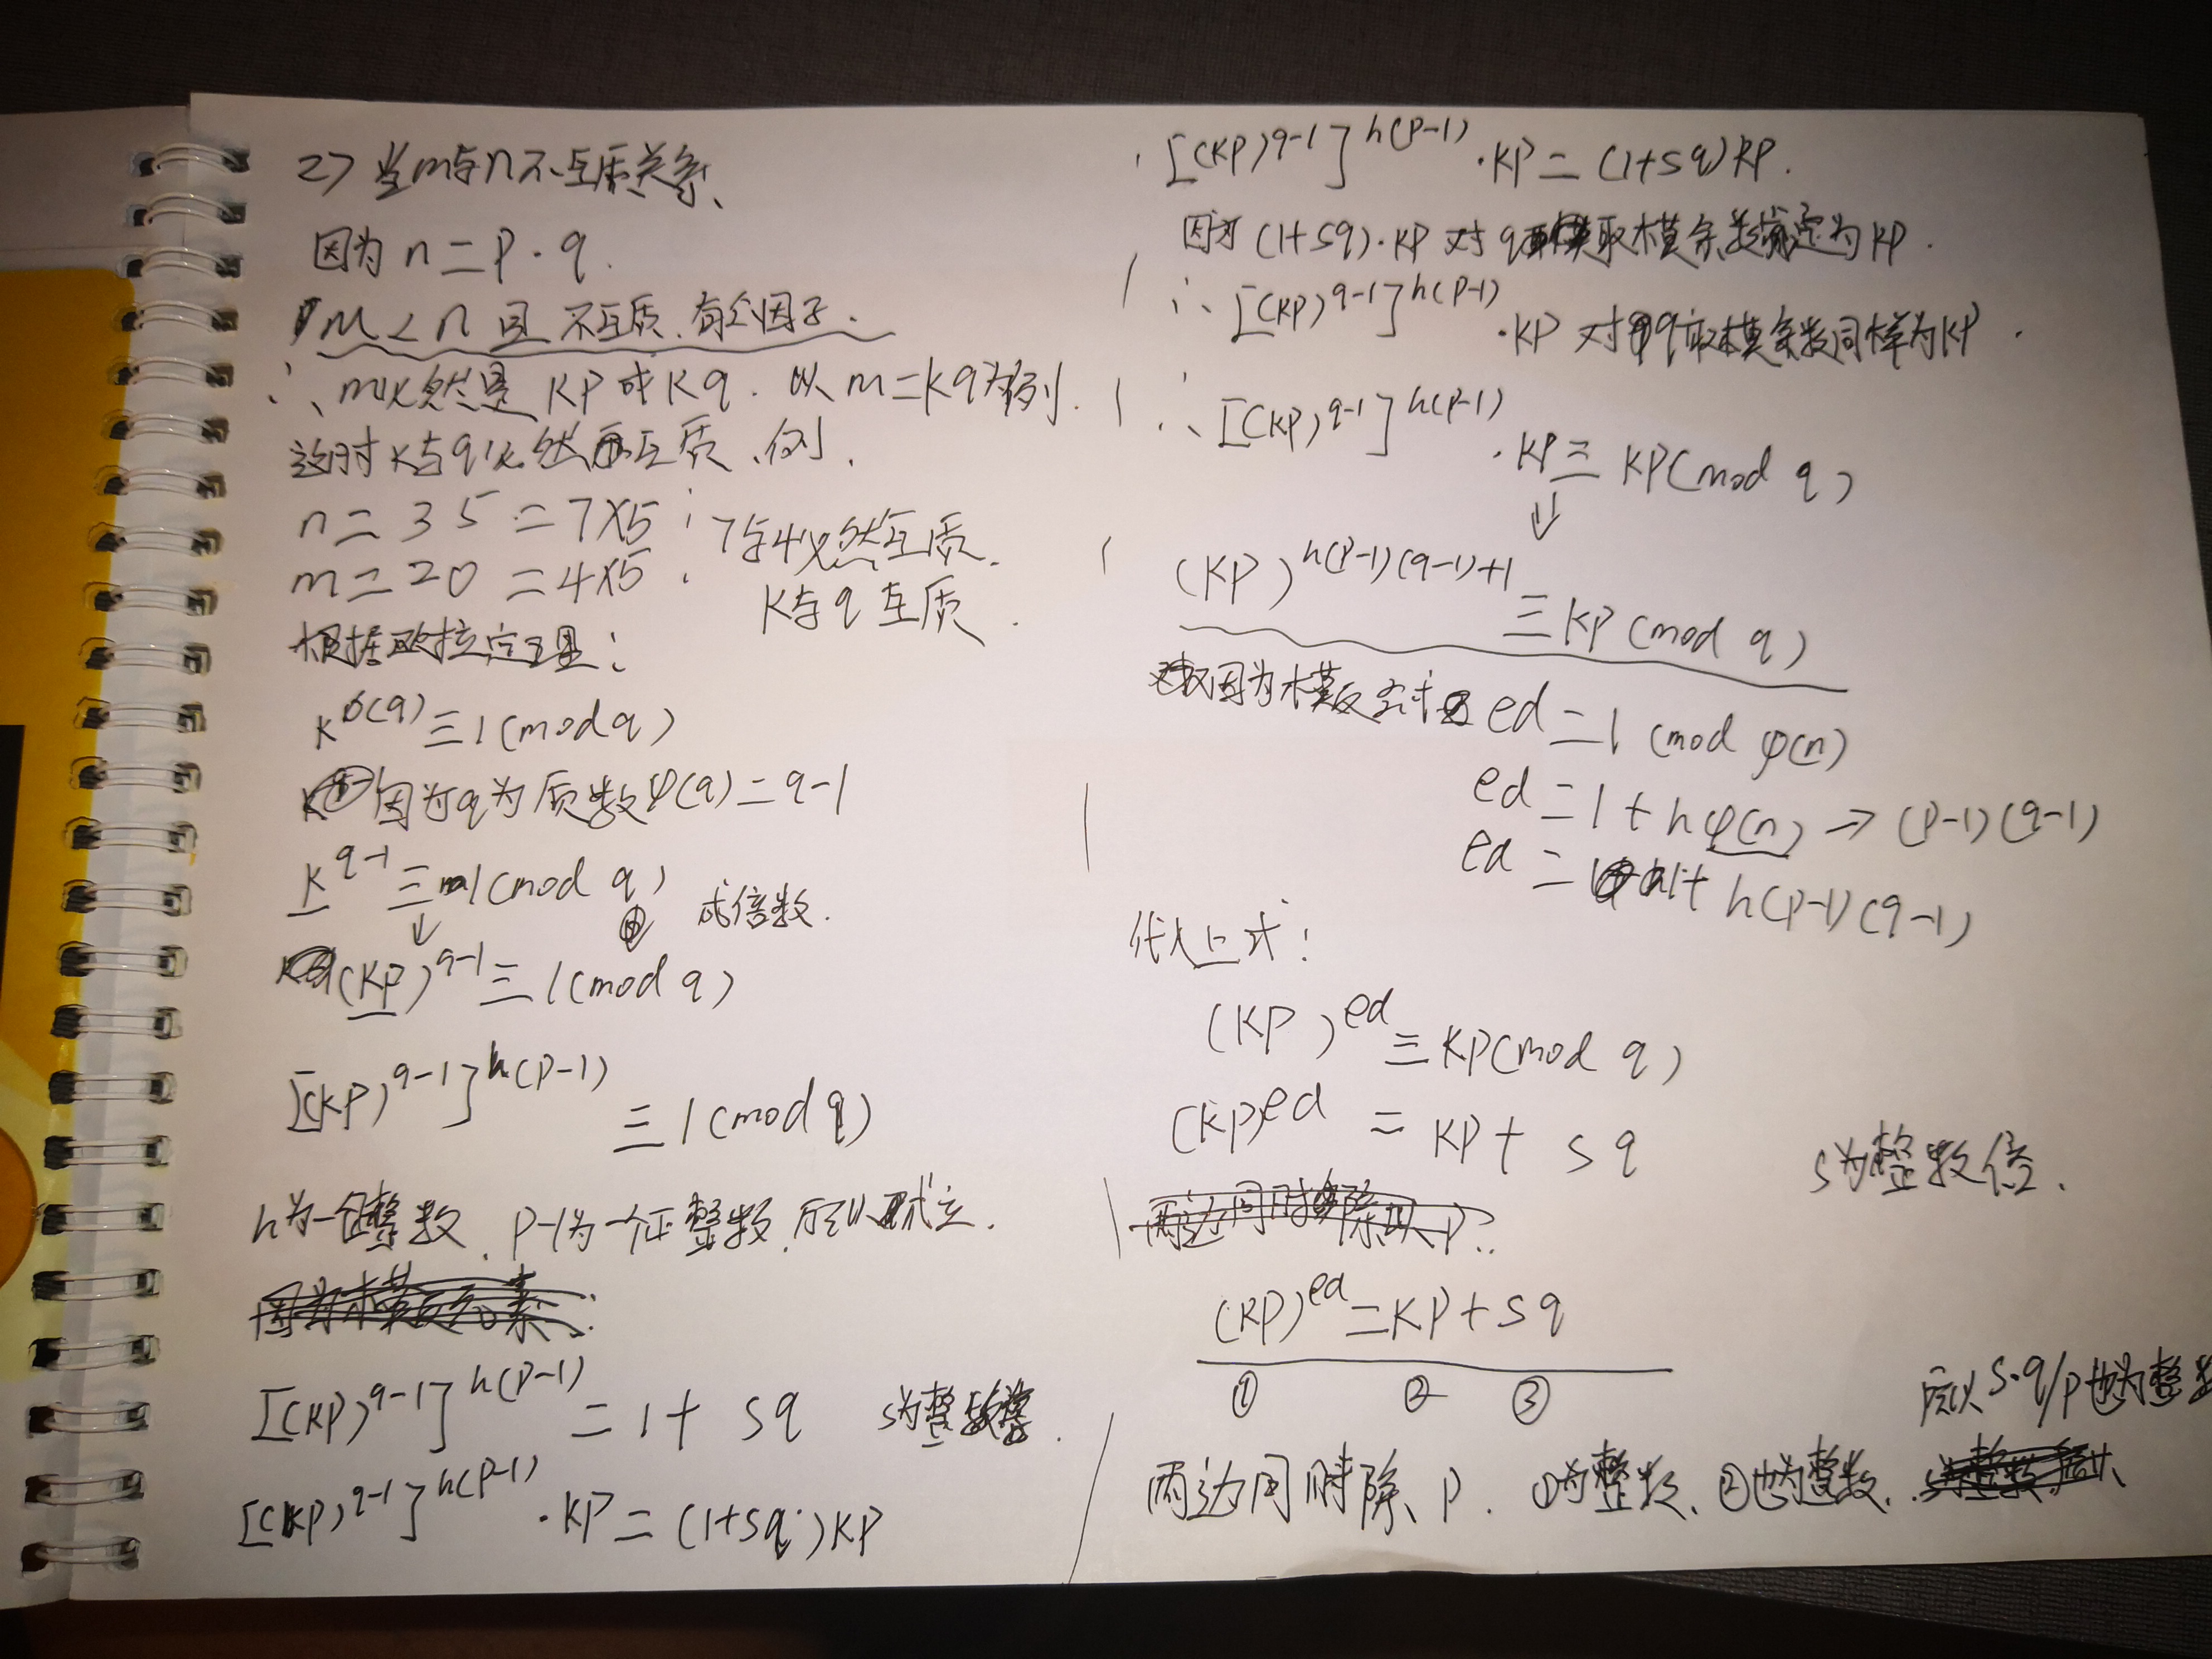 2) 当m与n不互质关系、
因为 n = p · q.
m < n 且 不互质、有公因子.
∴ m必然是 KP 或 Kq. 以 m = kq 为例.
这时 K与q必然互质、例.
n = 35 = 7×5 ;
m = 20 = 4×5 .
7与4必然互质.
K与q互质.
根据欧拉定理:
K^φ(q) ≡ 1 (mod q)
因为q为质数 φ(q) = q-1
K^q-1 ≡ 1 (mod q)
成倍数.
(KP)^q-1 ≡ 1 (mod q)
[(KP)^q-1]^h(P-1) ≡ 1 (mod q)
h为一个整数、P-1为一个正整数、所以成立.
[(KP)^q-1]^h(P-1) = 1 + sq s为整数
[(KP)^q-1]^h(P-1) · KP = (1+sq)KP
[(KP)^q-1]^h(P-1) · KP = (1+sq)KP.
因为 (1+sq)·KP 对q取模余数为KP.
∴ [(KP)^q-1]^h(P-1) · KP 对q取模余数同样为KP.
∴ [(KP)^q-1]^h(P-1) · KP ≡ KP (mod q)
↓
(KP)^h(P-1)(q-1)+1 ≡ KP (mod q)
因为模反 ed = 1 (mod φ(n)
ed = 1 + hφ(n) → (P-1)(q-1)
ed = 1+ h(P-1)(q-1)
代入上式:
(KP)^ed ≡ KP (mod q)
(KP)^ed = KP + sq s为整数倍.
(KP)^ed = KP + sq
① ② ③
所以 s·q/p 也为整数
两边同时除 P. ①为整数、②也为整数、